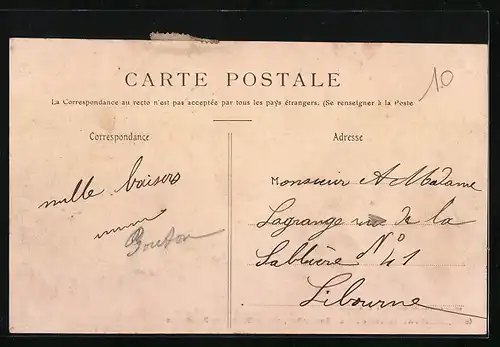 10
CARTE POSTALE
La Correspondance au recto n'est pas acceptée par tous les pays étrangers. (Se renseigner à la Poste
Correspondance
Adresse
mille baisers
Bouton
Monsieur A Madame
Lagrange rue de la
Sablière N° 41
Libourne